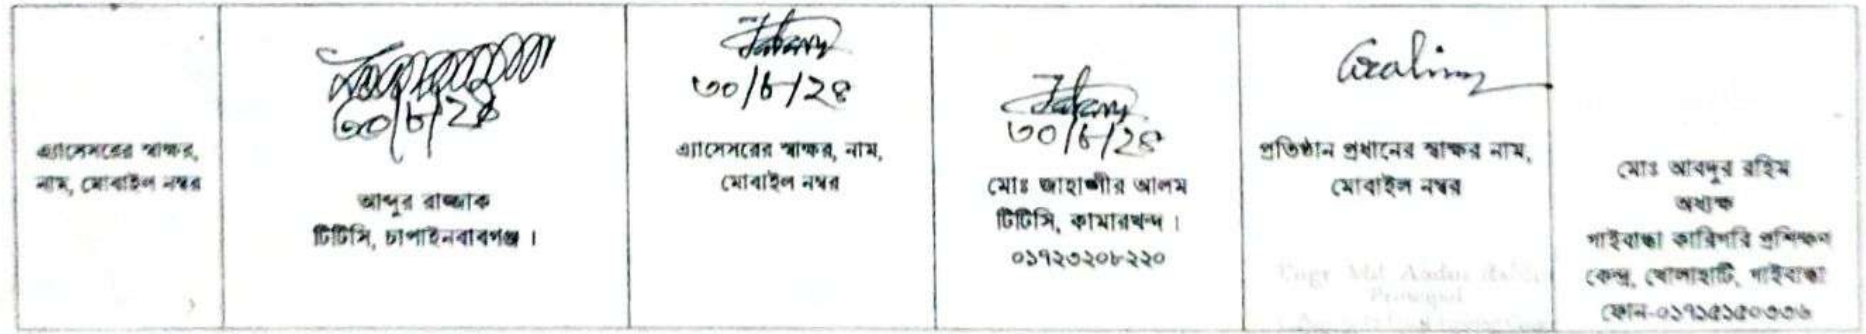 এ্যাসেসরের স্বাক্ষর,
নাম, মোবাইল নম্বর
৩০/৮/২৪
আব্দুর রাজ্জাক
টিটিসি, চাপাইনবাবগঞ্জ ।
৩০/৮/২৪
এ্যাসেসরের স্বাক্ষর, নাম,
মোবাইল নম্বর
৩০/৮/২৪
মোঃ জাহাঙ্গীর আলম
টিটিসি, কামারখন্দ ।
০১৭২৩২০৮২২০
প্রতিষ্ঠান প্রধানের স্বাক্ষর নাম,
মোবাইল নম্বর
Principal
মোঃ আবদুর রহিম
অধ্যক্ষ
গাইবান্ধা কারিগরি প্রশিক্ষণ
কেন্দ্র, খোলাহাটি, গাইবান্ধা
ফোন-০১৭১৫১৫০৩৩৬